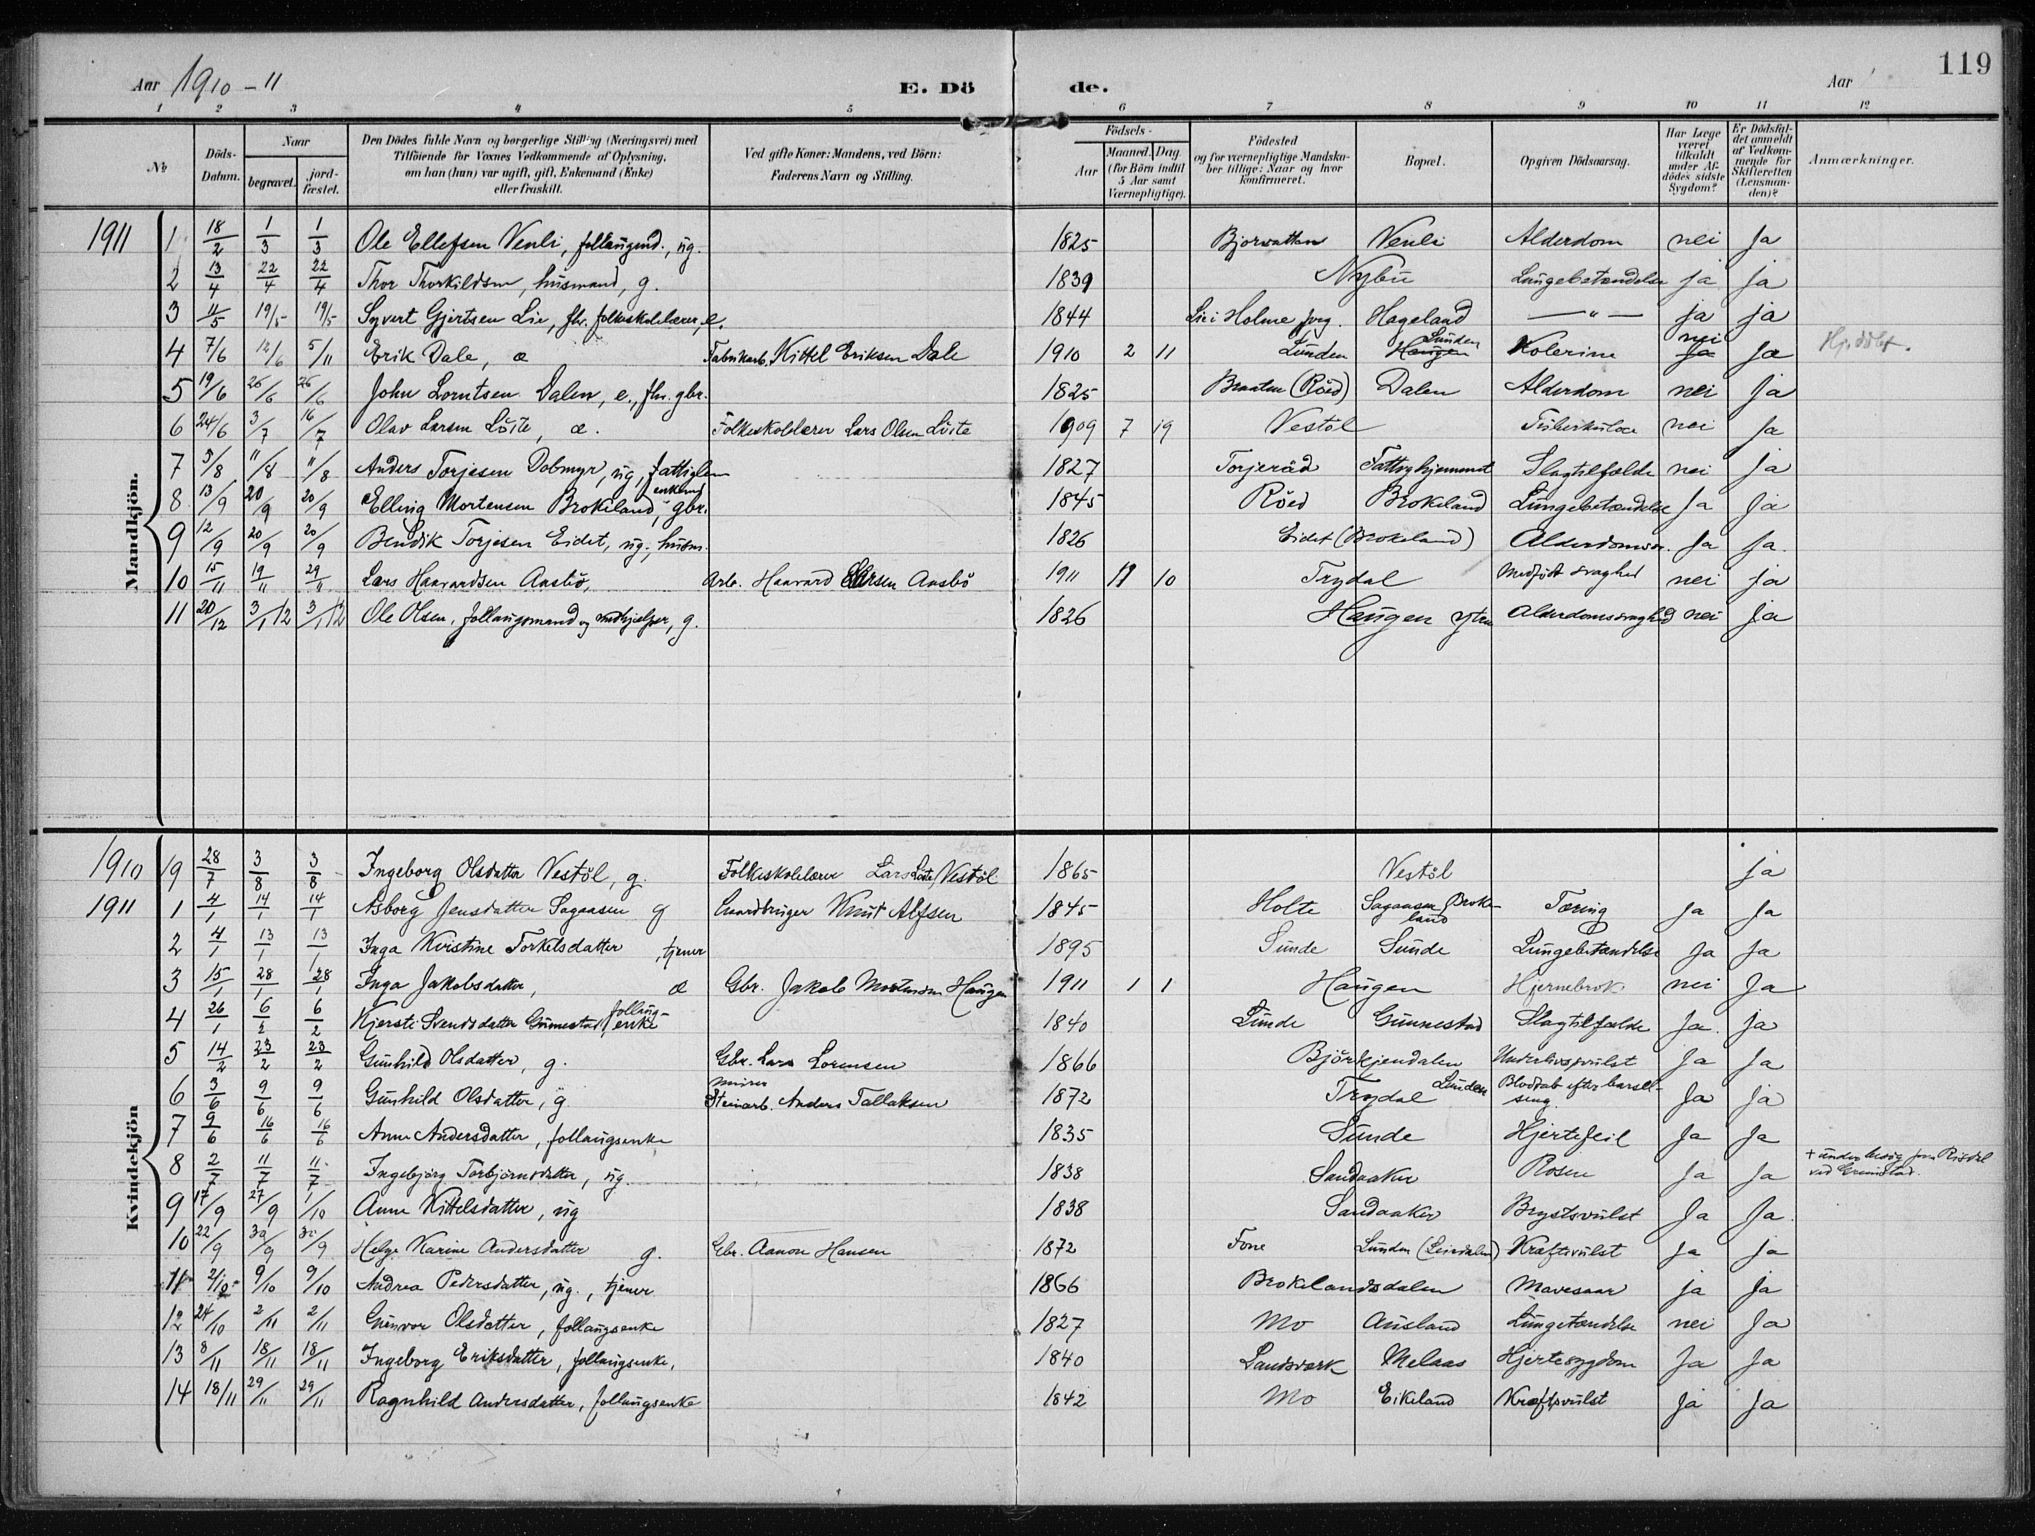 119
Aar 1910-11 E. Dö de. Aar
1 2 3 4 5 6 7 8 9 10 11 12
No. Döds-Datum. Naar begravet. jordfæstet. Den Dödes fulde Navn og borgerlige Stilling (Næringsvei) med Tilföiende for Voxnes Vedkommende af Oplysning, om han (hun) var ugift, gift, Enkemand (Enke) eller fraskilt. Ved gifte Koner: Mandens, ved Börn: Faderens Navn og Stilling. Födsels- Aar Maaned. Dag. (for Börn indtil 5 Aar samt Værnepligtige). Födested og for værnepligtige Mandskaber tillige: Naar og hvor konfirmeret. Bopæl. Opgiven Dödsaarsag. Har Læge været tilkaldt under Afdödes sidste Sygdom? Er Dödsfaldet anmeldt af Vedkommende for Skifteretten (Lensmanden)? Anmærkninger.
Mandkjön.
1911 1 18/2 1/3 1/3 Ole Ellefsen Venli, follaugmd., ug. 1825 Bjorvatten Venli Alderdom nei Ja
2 13/4 22/4 22/4 Thor Thorkildsen, husmand, g. 1839 Nybu Lungebetændelse ja ja
3 11/5 19/5 19/5 Syvert Gjertsen Lie, fhv. folkeskolelærer, e. 1844 Lie i Holme prg. Hageland — " — ja ja
4 7/6 12/6 5/11 Erik Dale, æ Fabrikarb. Kittel Eriksen Dale 1910 2 11 Lunden Haugen Lunden Kolerine Ja nei Ja
5 19/6 26/6 26/6 John Lorntsen Dalen, e., fhv. gbr. 1825 Braaten (Röed) Dalen Alderdom nei Ja
6 24/6 3/7 16/7 Olav Larsen Löite, æ. Folkeskolelærer Lars Olsen Löite 1909 7 19 Vestöl Tuberkulose nei Ja
7 5/8 11/8 11/8 Anders Torjesen Dobmyr, ug, fattiglem 1827 Torjeråd Fattighjemmet Slagtilfælde nei Ja
8 13/9 20/9 20/9 Elling Mortensen Brokeland, enkemd, gbr. 1845 Röed Brokeland Lungebetændelse Ja Ja
9 12/9 20/9 20/9 Bendik Torjesen Eidet, ug, husm. 1826 Eidet (Brokeland) Alderdomssv. Ja Ja.
10 15/11 19/11 29/11 Lars Haavardsen Aasbö, Arb. Haavard Larsen Aasbö 1911 11 10 Trydal Medfödt svaghed nei ja
11 20/12 3/1 12 3/1 12 Ole Olsen, follaugsmand og medhjelper, g. 1826 Haugen ytre Alderdomssvaghed nei Ja
Kvindekjön
1910 19 28/7 3/8 3/8 Ingeborg Olsdatter Vestöl, g. Folkeskolelærer Lars Löite, Vestöl 1865 Vestöl ja
1911 1 4/1 14/1 14/1 Asborg Jensdatter Sagaasen g Gaardbruger Knut Alfsen 1845 Holte Sagaasen, Brokeland Tæring Ja Ja
2 4/1 13/1 13/1 Inga Kristine Torkelsdatter, tjener 1895 Sunde Sunde Lungebetændelse Ja Ja
3 15/1 28/1 28/1 Inga Jakobsdatter, æ Gbr. Jakob Mortensen Haugen 1911 1 1 Haugen Hjernebrok nei Ja
4 26/1 6/2 6/2 Kjersti Svendsdatter Gunnestad, follaugenke 1840 Lunde Gunnestad Slagtilfælde Ja. Ja
5 14/2 23/2 23/2 Gunhild Olsdatter, g. Gbr. Lars Lorensen 1866 Björkjendalen Underlivssvulst Ja Ja
6 3/6 9/6 9/6 Gunhild Olsdatter, g Steinarb. minerer Anders Tallaksen 1872 Trydal Lunden Blodtab efter barselseng. Ja Ja
7 9/6 16/6 16/6 Anne Andersdatter, follaugsenke 1835 Sunde Hjertefeil Ja Ja
8 2/7 11/7 11/7 Ingebjörg Torbjörnsdatter, ug. 1838 Sandaaker Rosen Ja Ja + under besög paa Risdal ved Grimstad.
9 17/9 27/9 1/10 Anne Kittelsdatter, ug 1838 Sandaaker Brystsvulst Ja Ja.
10 22/9 30/9 30/9 Helge Karine Andersdatter g. Gbr. Aanon Hansen 1872 Fone Lunden (Leirdalen) Kræftsvulst Ja Ja
11 2/10 9/10 9/10 Andrea Pedersdatter, ug., tjener 1866 Brokelandsdalen Mavesaar ja Ja
12 24/10 2/11 2/11 Gunvor Olsdatter, follaugsenke 1827 Mo Ausland Lungetændelse nei Ja
13 8/11 18/11 18/11 Ingeborg Eriksdatter, follaugsenke, 1840 Landsverk Melaas Hjertesygdom Ja Ja
14 18/11 29/11 29/11 Ragnhild Andersdatter, follaugsenke 1842 Mo Eikeland Kræftsvulst Ja Ja